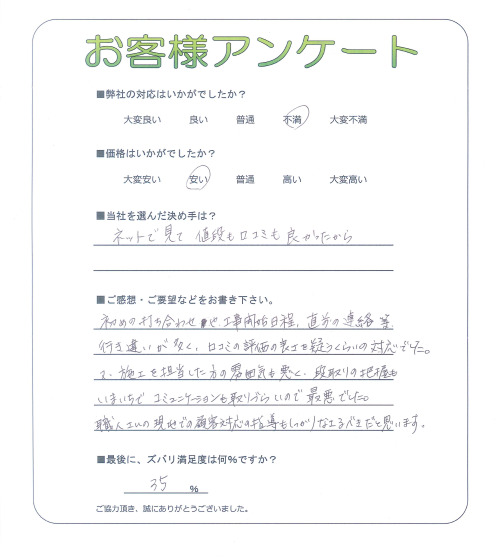 お客様アンケート
■弊社の対応はいかがでしたか？
大変良い 良い 普通 不満 大変不満
■価格はいかがでしたか？
大変安い 安い 普通 高い 大変高い
■当社を選んだ決め手は？
ネットで見て 値段も口コミも良かったから
■ご感想・ご要望などをお書き下さい。
初めの打ち合わせや、工事開始日程、直前の連絡等
行き違いが多く、口コミの評価の良さを疑うくらいの対応でした。
又、施工を担当した方の雰囲気も悪く、段取りの把握も
いまいちで コミュニケーションも取りづらいので最悪でした。
職人さんの現地での顧客対応の指導もしっかりなさるべきだと思います。
■最後に、ズバリ満足度は何%ですか？
35 %
ご協力頂き、誠にありがとうございました。